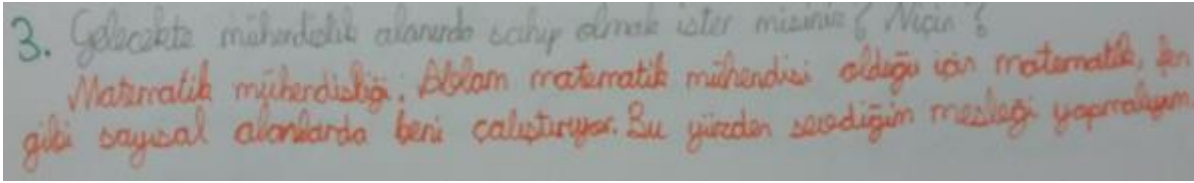 3. Gelecekte mühendislik alanında sahip olmak ister misiniz? Niçin?
Matematik mühendisliği. Ablam matematik mühendisi olduğu için matematik, fen
gibi sayısal alanlarda beni çalıştırıyor. Bu yüzden sevdiğim mesleği yapmalıyım